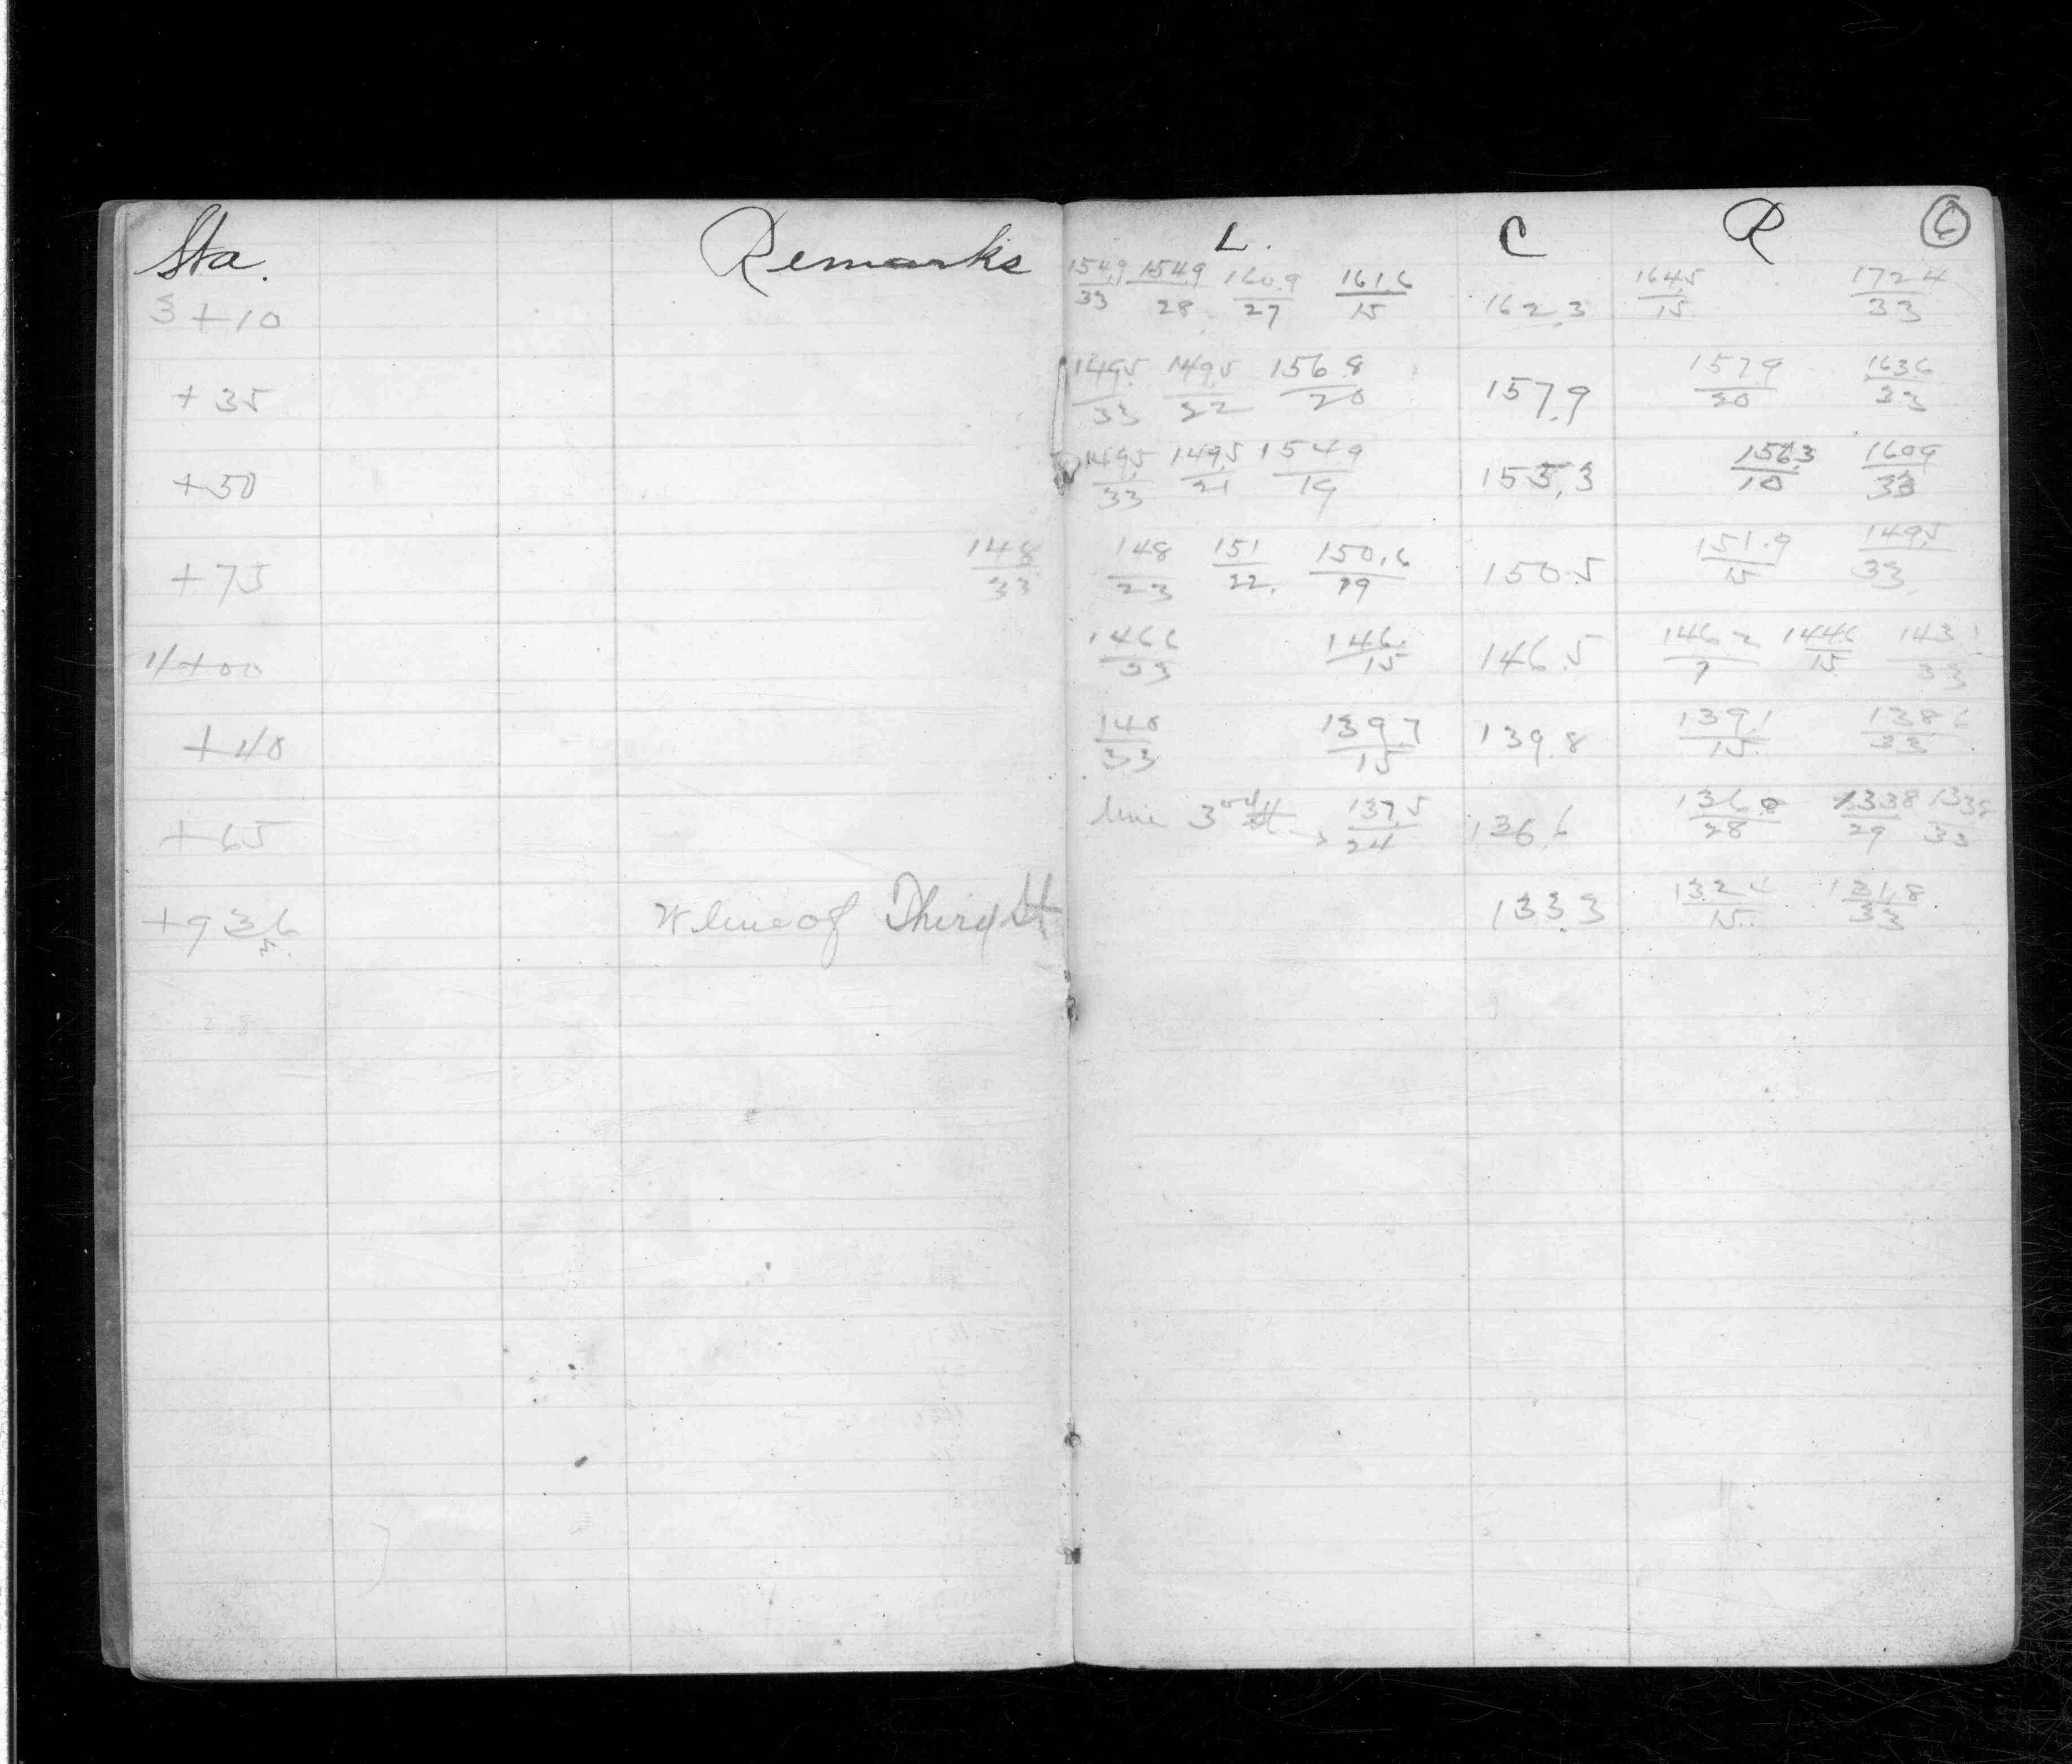 Sta. Remarks L. C R 6
3+10 154.9/33 154.9/28 160.9/27 161.6/15 162.3 164.5/15 172.4/33
+35 149.5/33 149.5/22 156.8/20 157.9 157.9/20 163.6/33
+50 149.5/33 149.5/21 154.9/19 155.3 156.3/10 160.9/33
+75 148/33 148/23 151/22. 150.6/19 150.5 151.9/15 149.5/33
4+00 146.6/33 146./15 146.5 146.2/7 144.6/15 143.1/33
+40 140/33 139.7/15 139.8 139.1/15 138.6/33
+65 line 3rd St → 137.5/24 136.6 136.8/28 133.8/29 133.8/33
+93 W line of Third St 133.3 132.4/15 131.8/33